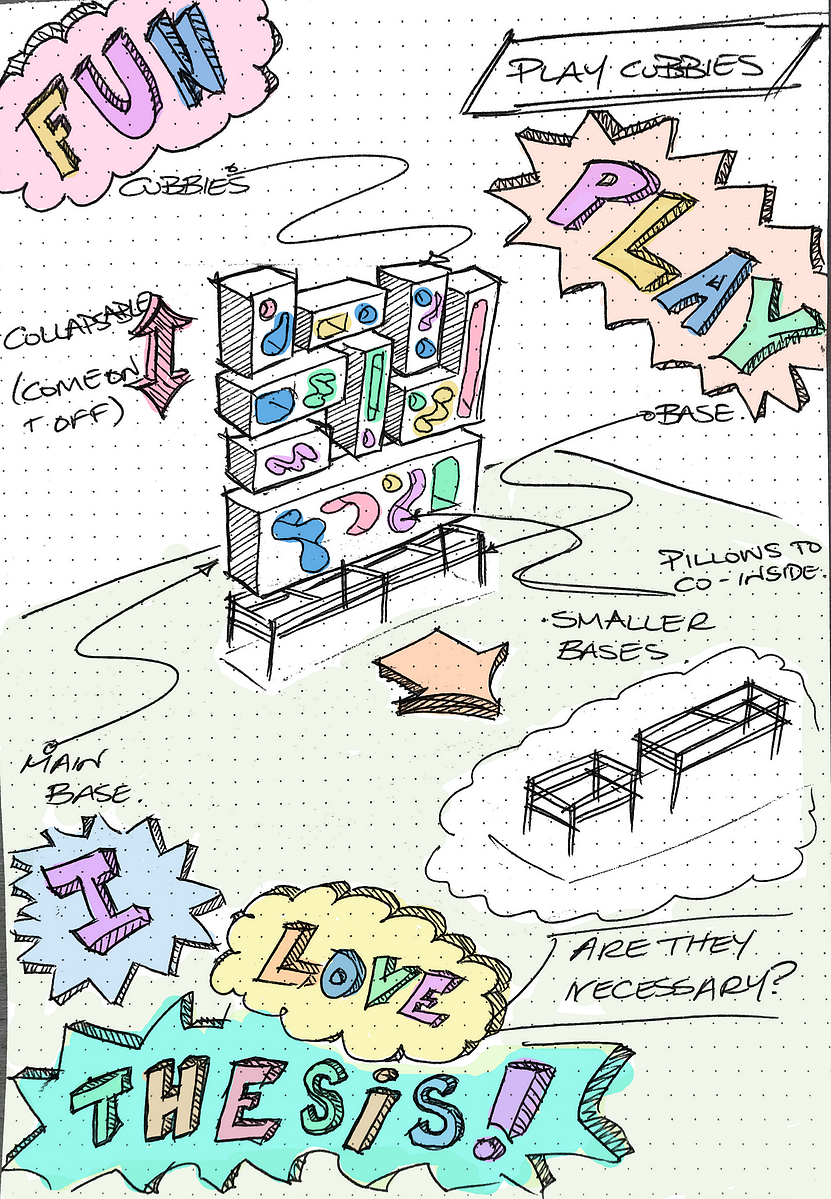 FUN
PLAY CUBBIES
CUBBIES
PLAY
COLLAPSABLE
(COME ON
+ OFF)
BASE.
PILLOWS TO
CO-INSIDE.
• SMALLER
BASES.
MAIN
BASE.
I
LOVE
ARE THEY
NECESSARY?
THESIS!